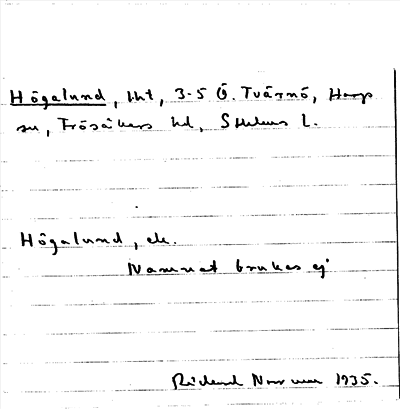 Högalund, lht, 3-5 Ö. Tvärnö, Harg
sn, Frösåkers hd, Sthlms l.
Högalund, ek.
Namnet brukas ej
Rickard 1935.